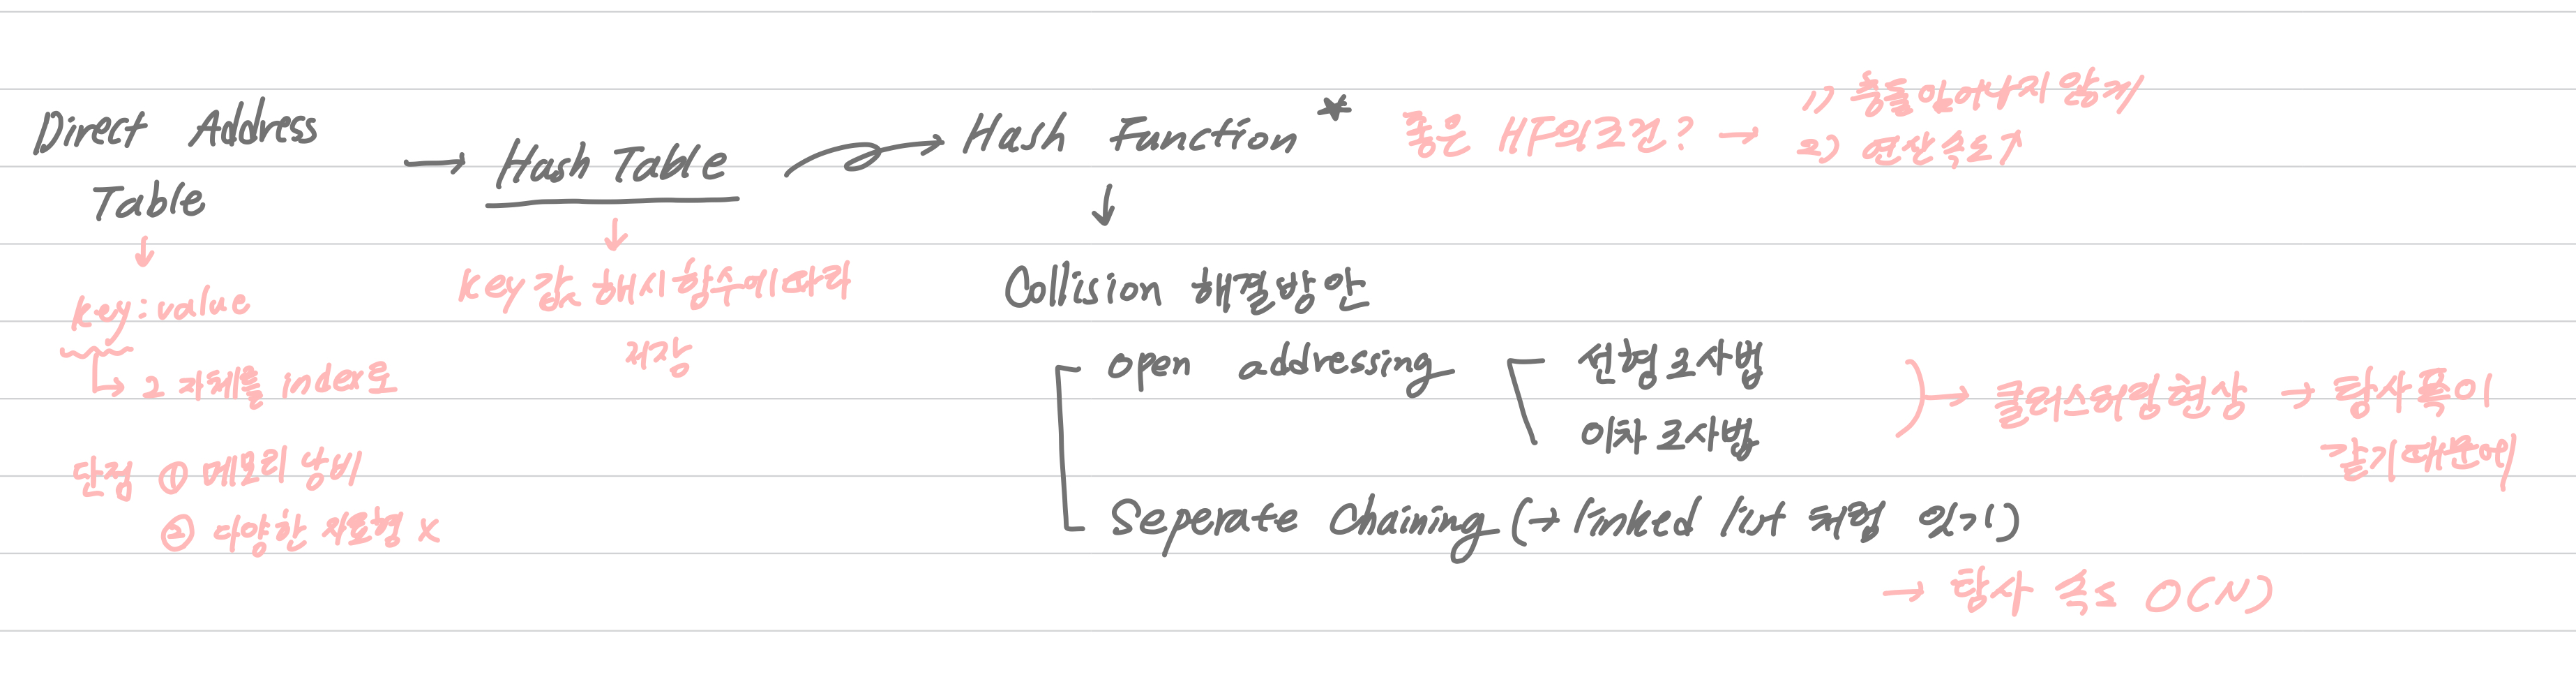 Direct Address
Table
↓
key:value
↳ 그 자체를 index로
단점 ① 메모리 낭비
② 다양한 자료형 x
→ Hash Table
↓
key 값, 해시함수에 따라
저장
→ Hash Function *
좋은 HF의 조건? →
1) 충돌 일어나지 않게
2) 연산속도↑
↓
Collision 해결방안
open addressing
선형조사법
이차조사법
→ 클러스터링 현상 → 탐사폭이
같기 때문에
Seperate Chaining (→ linked list 처럼 잇기)
→ 탐사 속도 O(N)